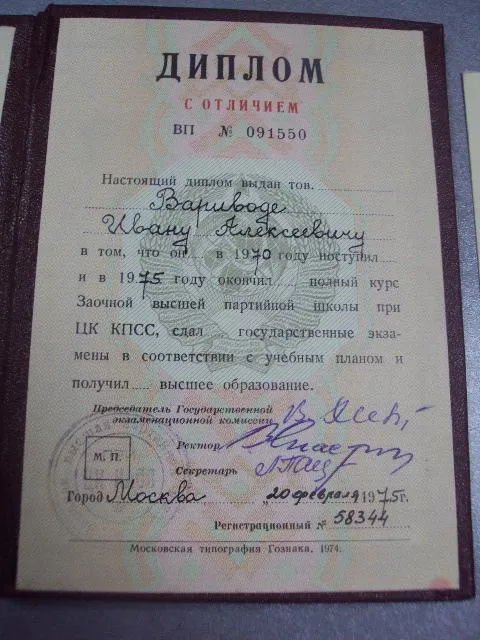 ДИПЛОМ
С ОТЛИЧИЕМ
ВП № 091550
Настоящий диплом выдан тов.
Вариводе
Ивану Алексеевичу
в том, что он в 1970 году поступил
и в 1975 году окончил полный курс
Заочной высшей партийной школы при
ЦК КПСС, сдал государственные экза-
мены в соответствии с учебным планом и
получил высшее образование.
Председатель Государственной
экзаменационной комиссии
Ректор
М. П.
Секретарь
Город Москва „20 февраля 1975г.
Регистрационный № 58344
Московская типография Гознака. 1974.